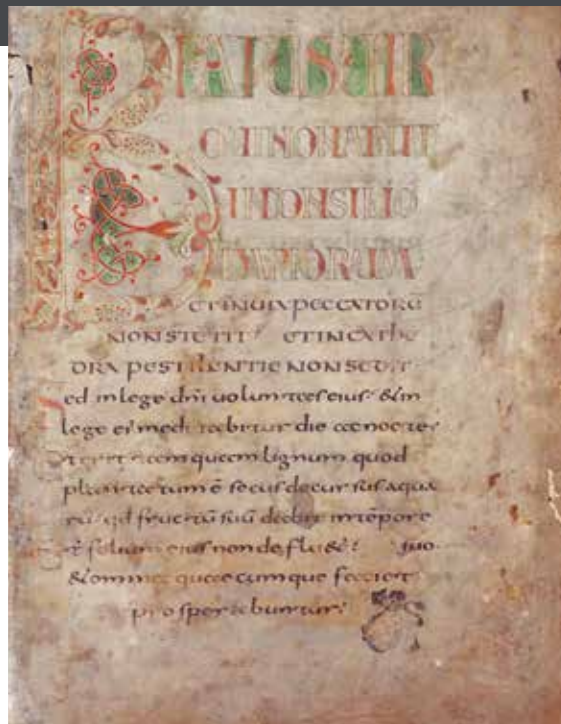 BEATUS UIR
QUI NON ABIIT
IN CONSILIO
IMPIORUM
ET IN UIA PECCATORŪ
NON STETIT ET IN CATHE
DRA PESTILENTIE NON SEDIT
sed in lege dn̄i uoluntas eius & in
lege ei meditabitur die ac nocte
et erit tamquam lignum quod
plantatum ē secus decursus aqua
rū qd fructū suū dabit in tēpore
et folium eius non defluet suo
& omnia quaecumque faciet
prosperabuntur